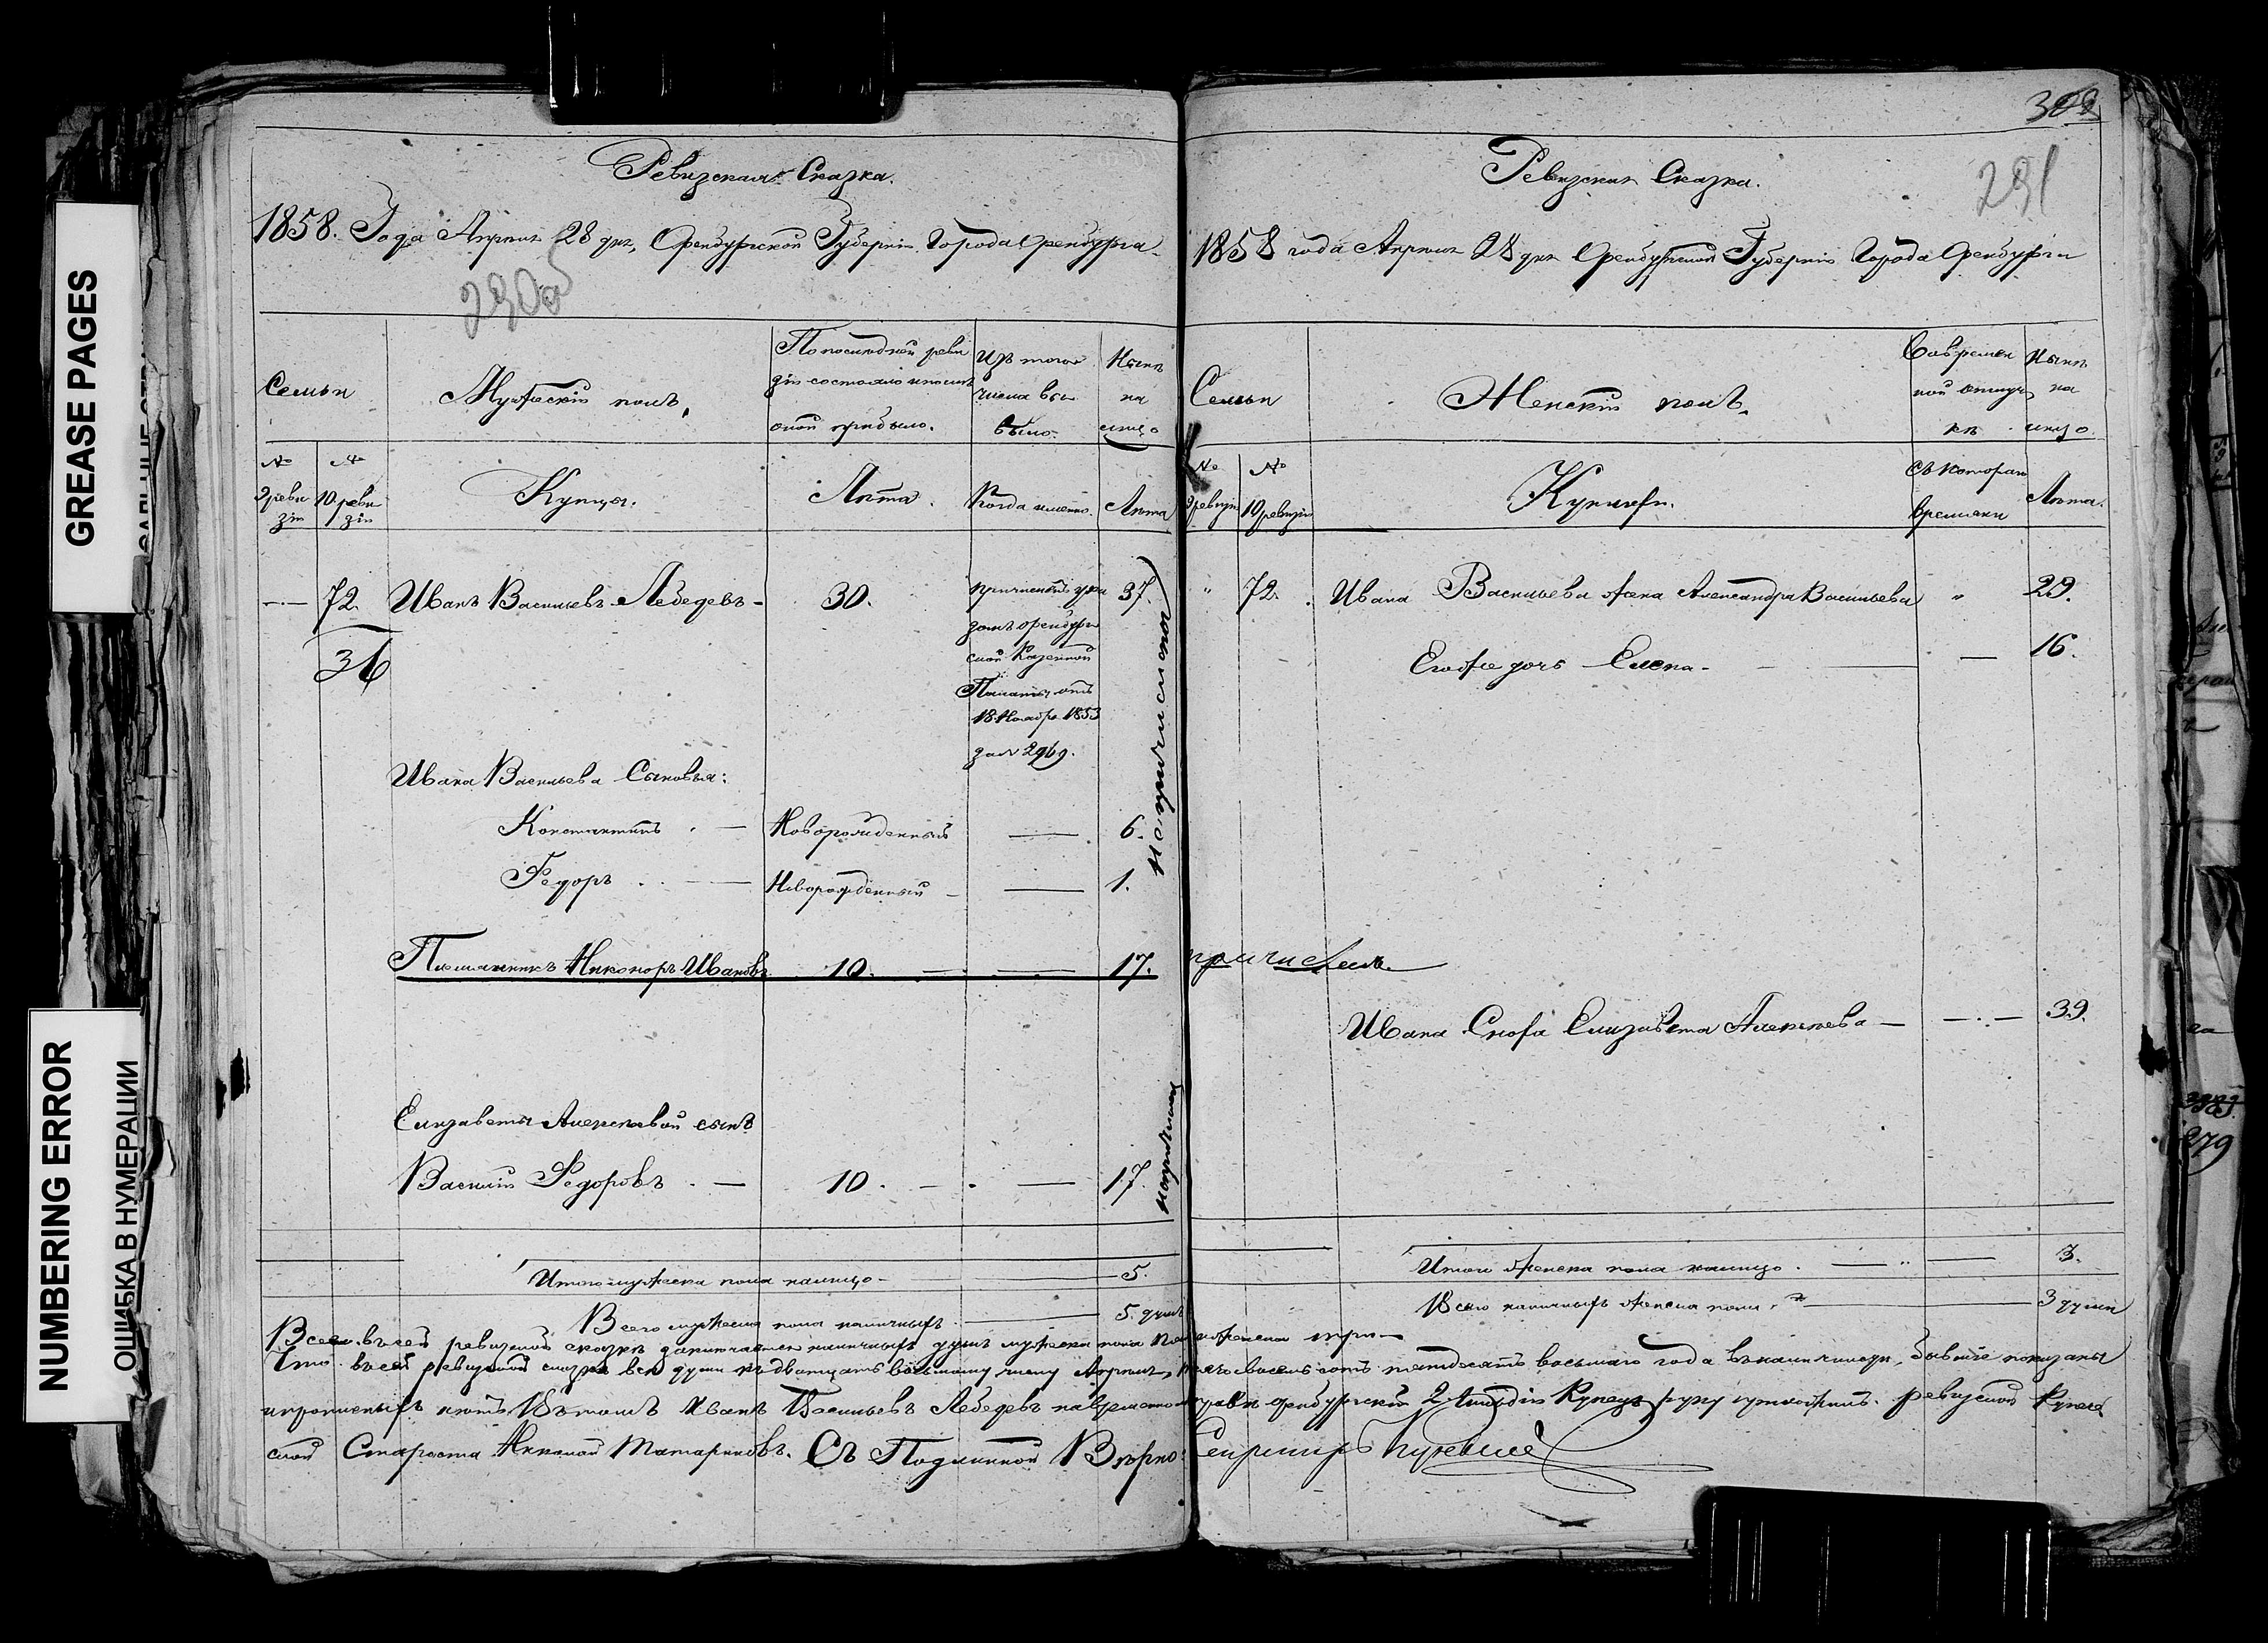 GREASE PAGES
NUMBERING ERROR
ОШИБКА В НУМЕРАЦИИ
Ревизская Сказка.
1858. Года Апрѣля 28 дня, Оренбургской Губерніи Города Оренбурга
290об
Семьи
Мужескій полъ,
По последней реви
зіи состояло и послѣ
оной прибыло.
Изъ того
числа вы
было.
Нынѣ
на
лицо
№
9 реви
зіи
№
10 реви
зіи
Купцы.
Лѣта.
Когда именно.
Лѣта
72. Иванъ Васильевъ Лебедевъ 30. 37.
36
Причисленъ ука
зомъ Оренбург
ской Казенной
Палаты отъ
18 Ноябр. 1853
за № 2969.
Ивана Васильева Сыновья:
Константинъ Новорожденный 6.
Федоръ Новорожденный 1.
Племянникъ Никоноръ Ивановъ 10. 17.
Елизаветы Алексѣевой сынъ
Василій Федоровъ 10. 17.
Итого мужеска пола налицо 5.
Всего мужеска пола наличныхъ 5. душъ
302
291
Ревизская Сказка.
1858 года Апрѣля 28 дня Оренбургской Губерніи Города Оренбурга
Семьи
Женскій полъ.
Во времен
ной отлуч
кѣ
Нынѣ
на
лицо
№
9 ревизіи
№
10 ревизіи
Съ котораго
времени
Лѣта.
" 72. Ивана Васильева жена Александра Васильева " 29.
Его же дочь Елена 16.
Ивана Сноха Елизавета Алексѣева 39.
Итого женска пола налицо 3.
Всего наличныхъ женска пола 3 души
Всего въ сей ревизской сказкѣ заключается наличныхъ душъ мужеска пола женска три
Что въ сей ревизской сказкѣ всѐ души къ двадцать восьмому числу Апрѣля восемьсотъ пятьдесятъ восьмаго года въ наличности бывшіе показаны
и прописныхъ нѣтъ Въ томъ Иванъ Васильевъ Лебедевъ Оренбургскій 2 Гильдіи Купецъ руку приложилъ. ревизской Купече
ской Староста Николай Татариновъ. Съ Подлинной Вѣрно:
279